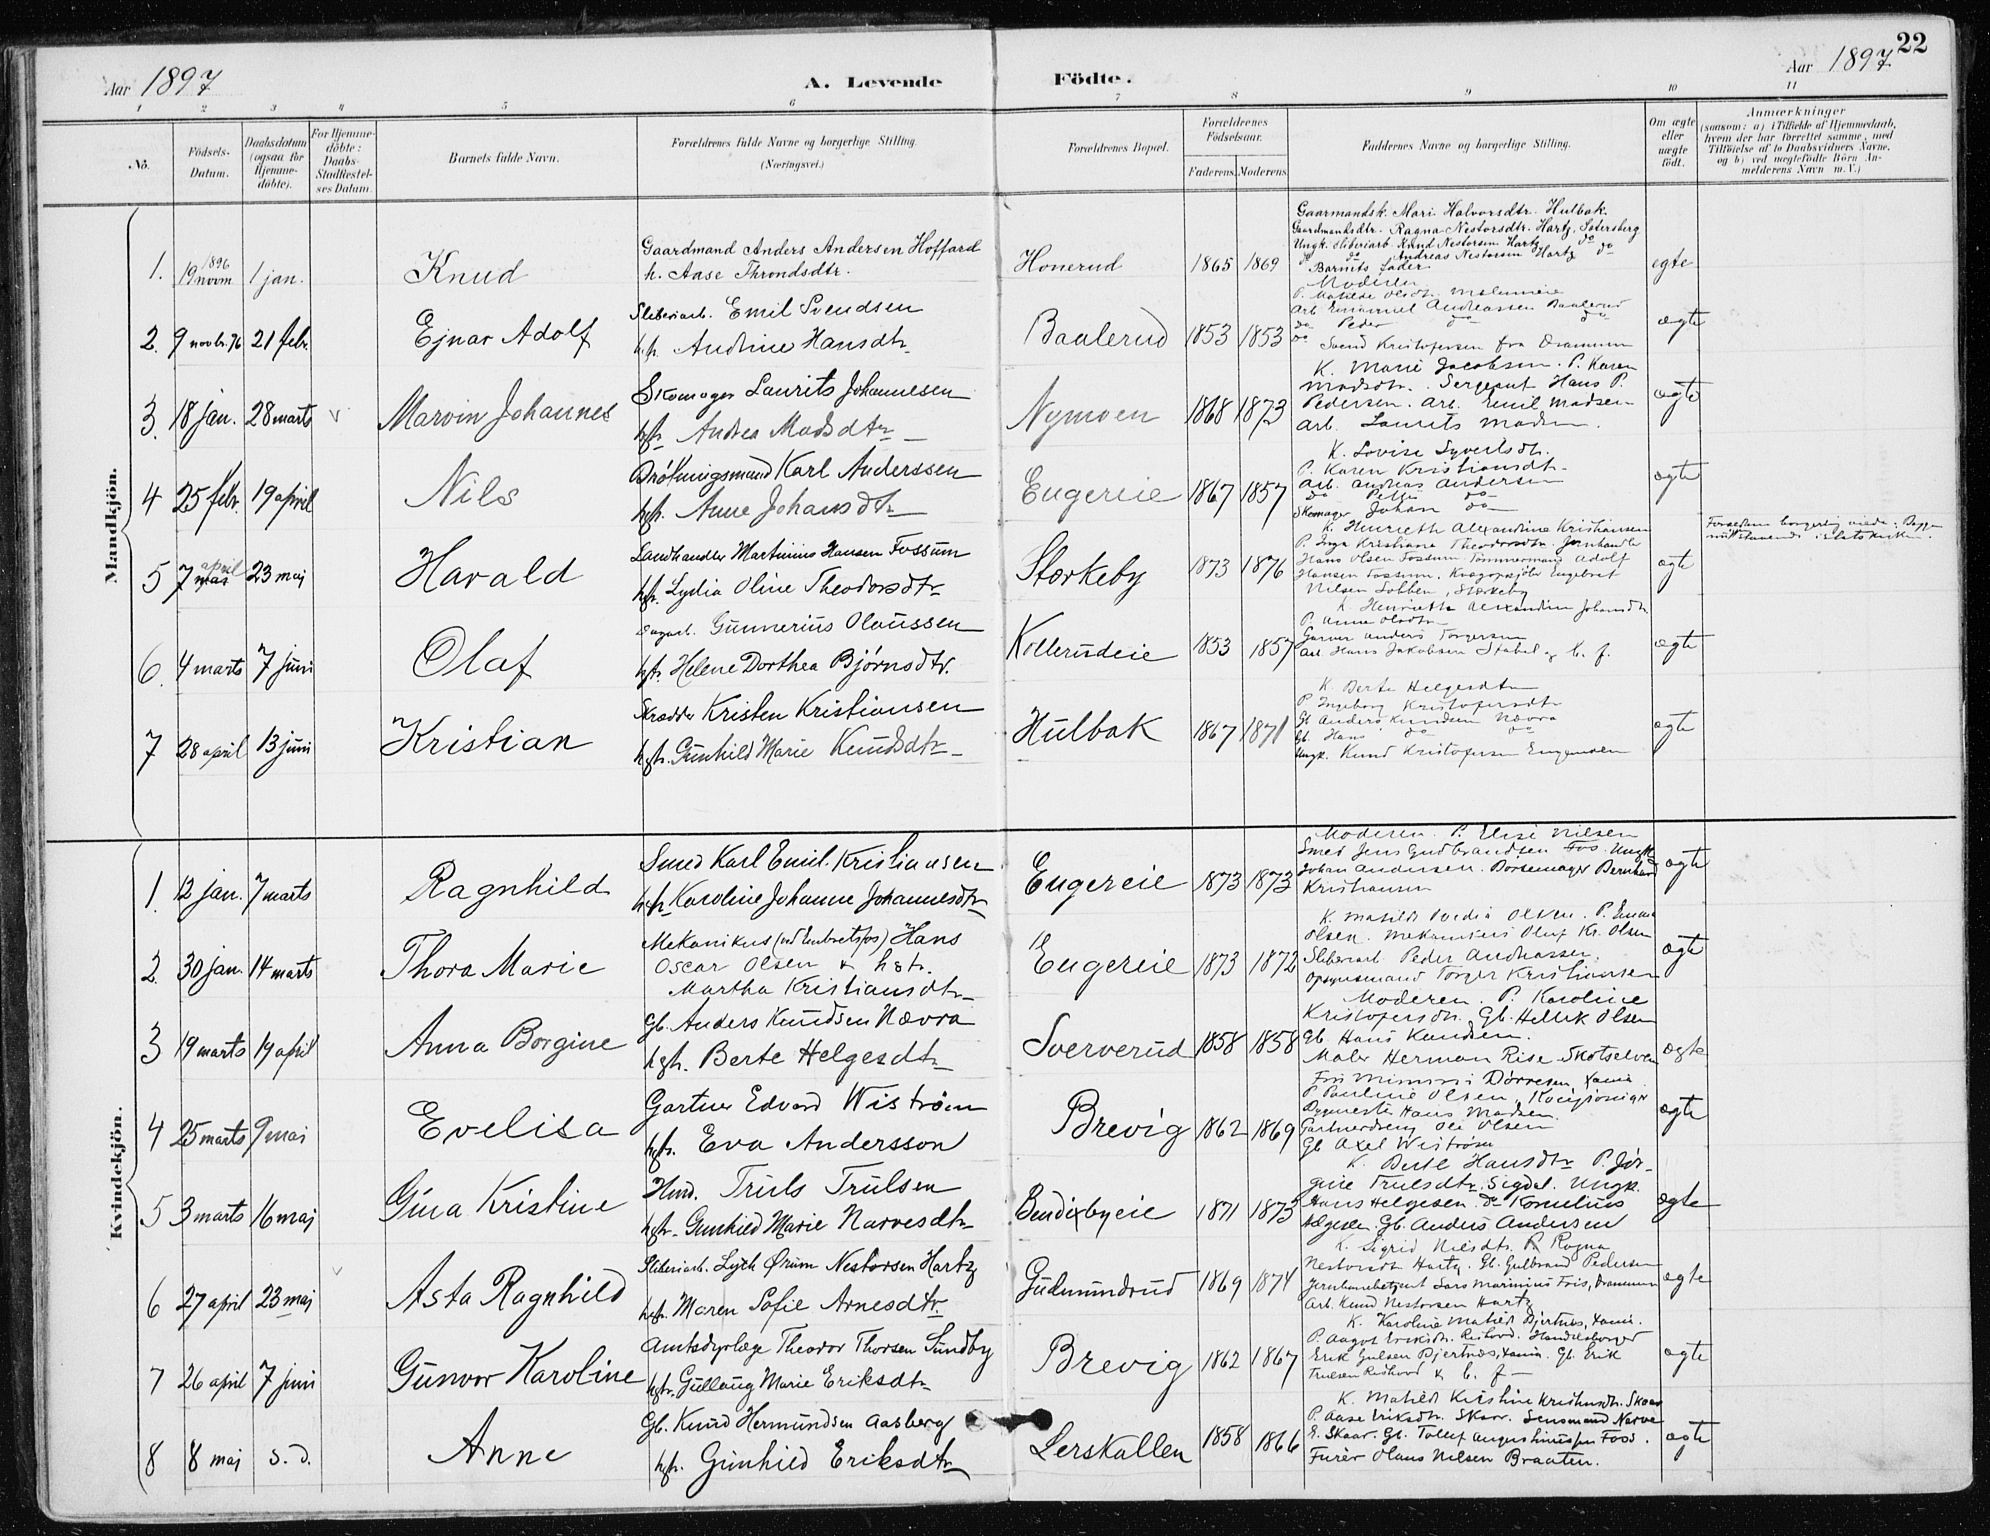 22
Aar 1897
A. Levende Födte.
Aar 1897
1 2 3 4 5 6 7 8 9 10 11
No.
Födsels-Datum.
Daabsdatum (ogsaa for Hjemme-döbte).
For Hjemme-döbte: Daabs-Stadfæstel-ses Datum.
Barnets fulde Navn.
Forældrenes fulde Navne og borgerlige Stilling. (Næringsvei.)
Forældrenes Bopæl.
Forældrenes Födselsaar.
Faderens. Moderens.
Faddernes Navne og borgerlige Stilling.
Om ægte eller uægte födt.
Anmærkninger
(saasom: a) i Tilfælde af Hjemmedaab, hvem der har forrettet samme, med Tilföielse af to Daabsvidners Navne, og b) ved uægtefödte Börn An-melderens Navn m.V.)
Mandkjön.
1. 1896 19 novm 1 jan. Knud
Gaardmand Anders Andersen Hoffard
h. Aase Throndsdtr.
Honerud 1865 1869
Gaarmandsk. Mari Halvorsdtr. Hulbak.
Gaardmandsdtr. Ragna Nestorsdtr. Hartz, Sætersberg
Ungk. Sliberiarb Knud Nestorsen Hartz do
do do Andreas Nestorsen Hartz do
Barnets fader
egte
2. 9 novbr. 96 21 febr. Ejnar Adolf
Sliberiarb. Emil Svendsen
h.fr. Andrine Hansdtr.
Baalerud 1853 1853
Moderen
P. Matilde Olsdtr.
Arb Emanuel Andreassen Baalerud
do Peder do do
do Svend Kristofersen fra Drammen
ægte
3. 18 jan. 28 marts v Marvin Johannes
Skomager Laurits Johannesen
hfr. Andrea Madsdtr.
Nymoen 1868 1873
K. Marie Jacobsen. P. Karen
Madsdtr. Sergeant Hans P.
Pedersen. Arb. Emil Madsen
Arb. Laurits Madsen.
ægte
4 25 febr. 19 april Nils
Karl Anderssen
hfr. Anne Johansdtr
Engereie 1867 1857
K. Lovise Syvertsdtr.
P. Karen Kristiansdtr.
Arb. Andreas Andersen
do Petter do
Skomager Johan do
ægte
5 7 april 23 maj Harald
Landhandler Martinius Hansen Fossum
hfr. Lydia Oline Theodorsdtr
Stærkeby 1873 1876
K. Henriette Alexandrine Kristiansen
P. Inga Kristiane Theodorsdtr. Jernhandler
Hans Olsen Fossum Tømmermand Adolf
Hansen Fossum. Engebret
Nilsen Lobben, Stærkeby
ægte
6. 4 marts 7 juni Olaf
Dagarb. Gunnerius Olaussen
hfr. Helene Dorthea Bjørnsdtr.
Kollerudeie 1853 1857
K. Henriette Alexandrine Johansdtr
P. Anne Olsdtr
Garver Anders Torgersen
Arb. Hans Jakobsen Stabel og b. f.
ægte
7 28 april 13 juni Kristian
Skrædder Kristen Kristiansen
hfr. Gunhild Marie Knudsdtr
Hulbak 1867 1871
K. Berte Helgesdtr
P. Ingeborg Kristofersdtr
Gb Anders Knudsen Nævra
Gb. Hans do do
Ungk. Knud Kristofersen Engemoen
ægte
Kvindekjön.
1. 12 jan. 7 marts Ragnhild
Smed Karl Emil Kristiansen
hfr. Karoline Johanne Johannesdtr
Engereie 1873 1873
Moderen. P. Elise Nilsen
Smed Jens Gudbrandsen Fos. Ungk
Johan Andersen. Børsemager Bernhard
Kristiansen
ægte
2. 30 jan. 14 marts Thora Marie
Mekanikus (ved Embretsfos) Hans
Oscar Olsen & hstr.
Martha Kristiansdtr
Engereie 1873 1872
K. Matilde Olsen. P. Emma
Olsen. Mekanikus Oluf Kr. Olsen
Sliberiarb Peder Andreassen.
Opsynsmand Torger Kristiansen
ægte
3 19 marts 19 april Anna Borgine
Gb. Anders Knudsen Nævra
hfr. Berte Helgesdtr
Sververud 1858 1858
Moderen. P. Karoline
Kristofersdtr. Gb. Hellik Olsen
Gb. Hans Knudsen.
Maler Herman Rise Skotselven
ægte
4 25 marts 9 maj Evelisa
Gartner Edvard Wistrøm
hfr. Eva Andersson
Brevig 1862 1869
P Pauline Olsen,
Hans Madsen.
Gartnerdreng Ole Olsen
Gb Axel Wistrøm
ægte
5 3 marts 16 maj Gina Kristine
Hmd. Truls Trulsen
hfr. Gunhild Marie Narvesdtr
Bendixbyeie 1871 1873
K. Berte Hansdtr P. Jør-
gine Trulsdtr. Sigdal. Ungk.
Hans Helgesen. do Kornelius
Helgesen. Gb. Anders Andersen
ægte
6 27 april 23 maj v Asta Ragnhild
Sliberiarb. Lyth Ørum Nestorsen Hartz
hfr. Maren Sofie Arnesdtr.
Gudmundrud 1869 1874
K. Sigrid Nilsdtr. P. Ragna
Nestorsdtr Hartz, Gb. Gulbrand Pedersen
Jernbanebetjent Lars Marinius Friis, Drammen
Arb. Knud Nestorsen Hartz
ægte
7 26 april 7 juni Gunvor Karoline
Amtsdyrlæge Theodor Thorsen Sundby
hfr. Gullaug Marie Eriksdtr
Brevig 1862 1867
K. Karoline Matilde Bjertnes, Xania.
P. Aagot Eriksdtr. Handelsborger
Erik Gulsen Bjertnes, Xania. Gb. Erik
Trulsen & b. f.
ægte
8 8 maj s. d. Anne
Gb. Knud Hermundsen Aasberg
hfr. Gunhild Eriksdtr
Lerskallen 1858 1866
K. Matilde Kristine Kristensdtr. Skaar
P. Aase Eriksdtr. Skaar. Lensmand Narve
E. Skaar. Gb. Tollef Augustinussen Foss.
Furér Olaus Nilsen Braaten.
ægte